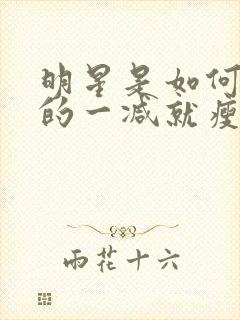 明星是如何
的一减就瘦
雨花十六